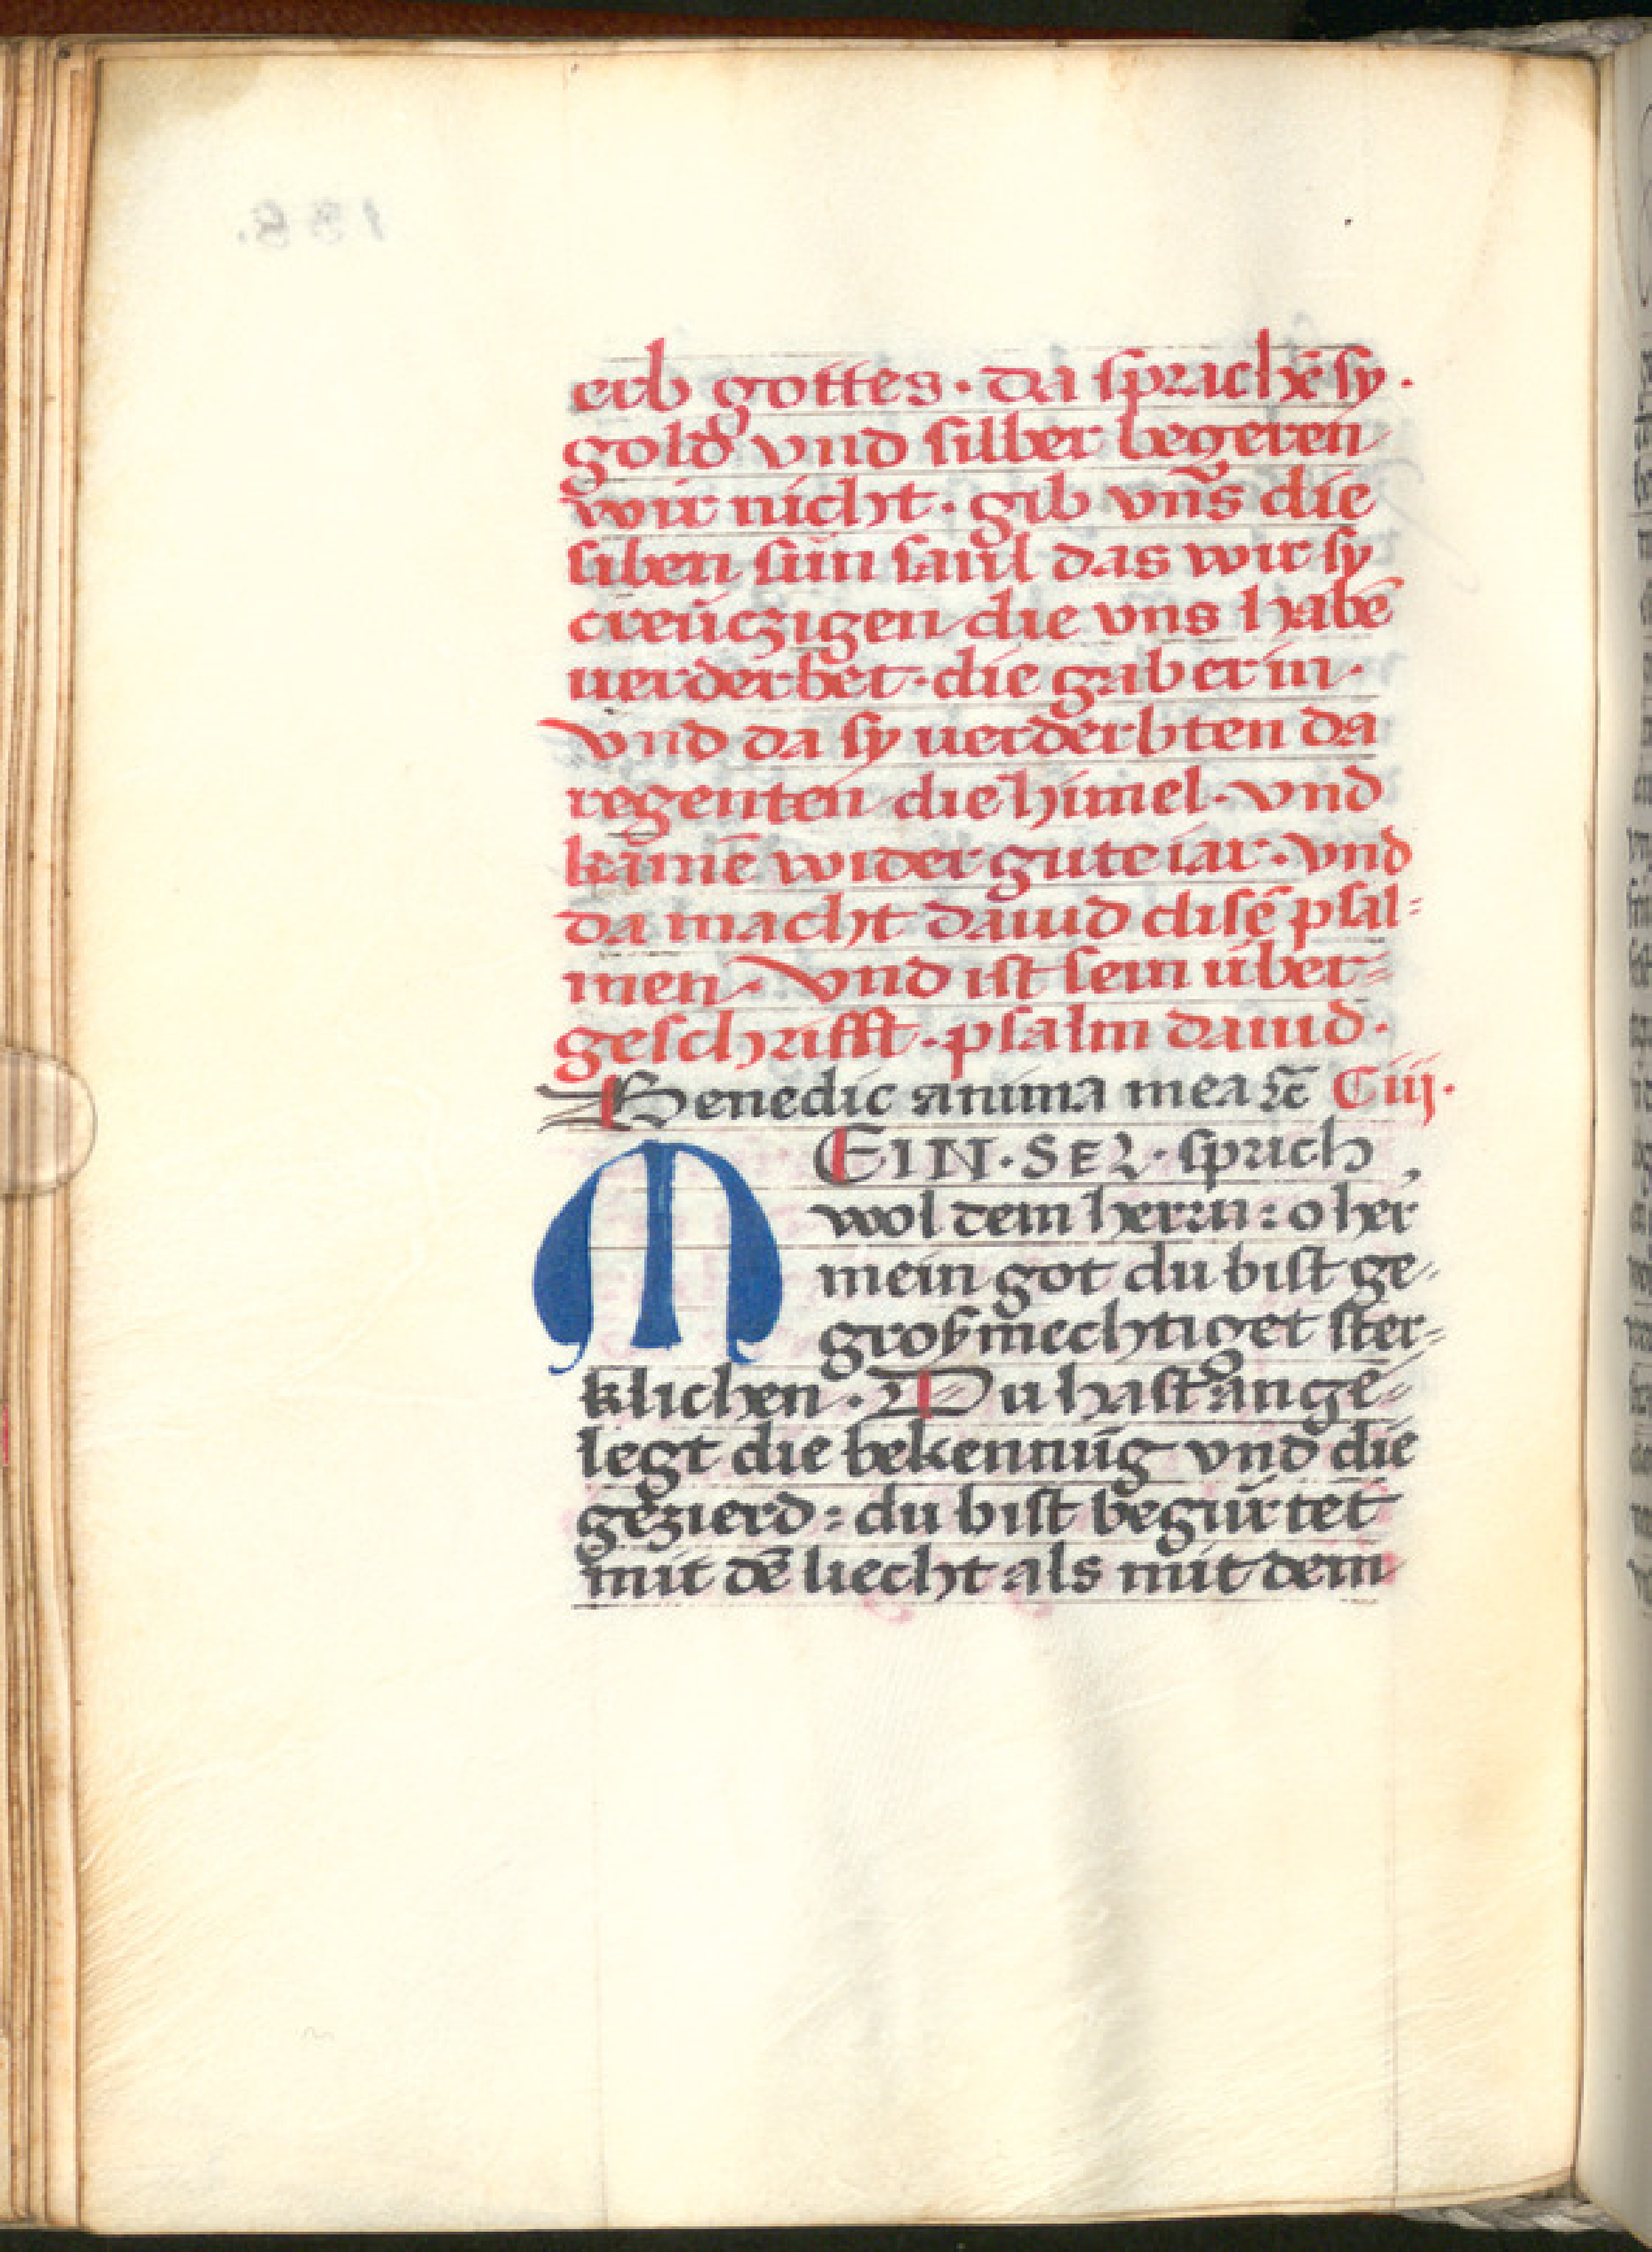 erb gottes · da sprachē sy ·
gold vnd silber begeren
wir nicht · gib vn̄s die
siben sün saul das wir sy
creüczigen die vns habē
uerderbet · die gab er in ·
vnd da sy uerderbten da
regenten die himel · vnd
kāmē wider gute iar · vnd
da macht dauid disē psal⸗
men · vnd ist sein über⸗
geschrifft · psalm dauid ·
Benedic anima mea ꝛc̄ Ciij ·
MEIN · SEL · sprich
wol dem herrn : o her
mein got du bist ge⸗
groſzmechtiget ster⸗
klichen · Du hast ange⸗
legt die bekennūg vnd die
gezierd : du bist begürtet
mit dē liecht als mit dem